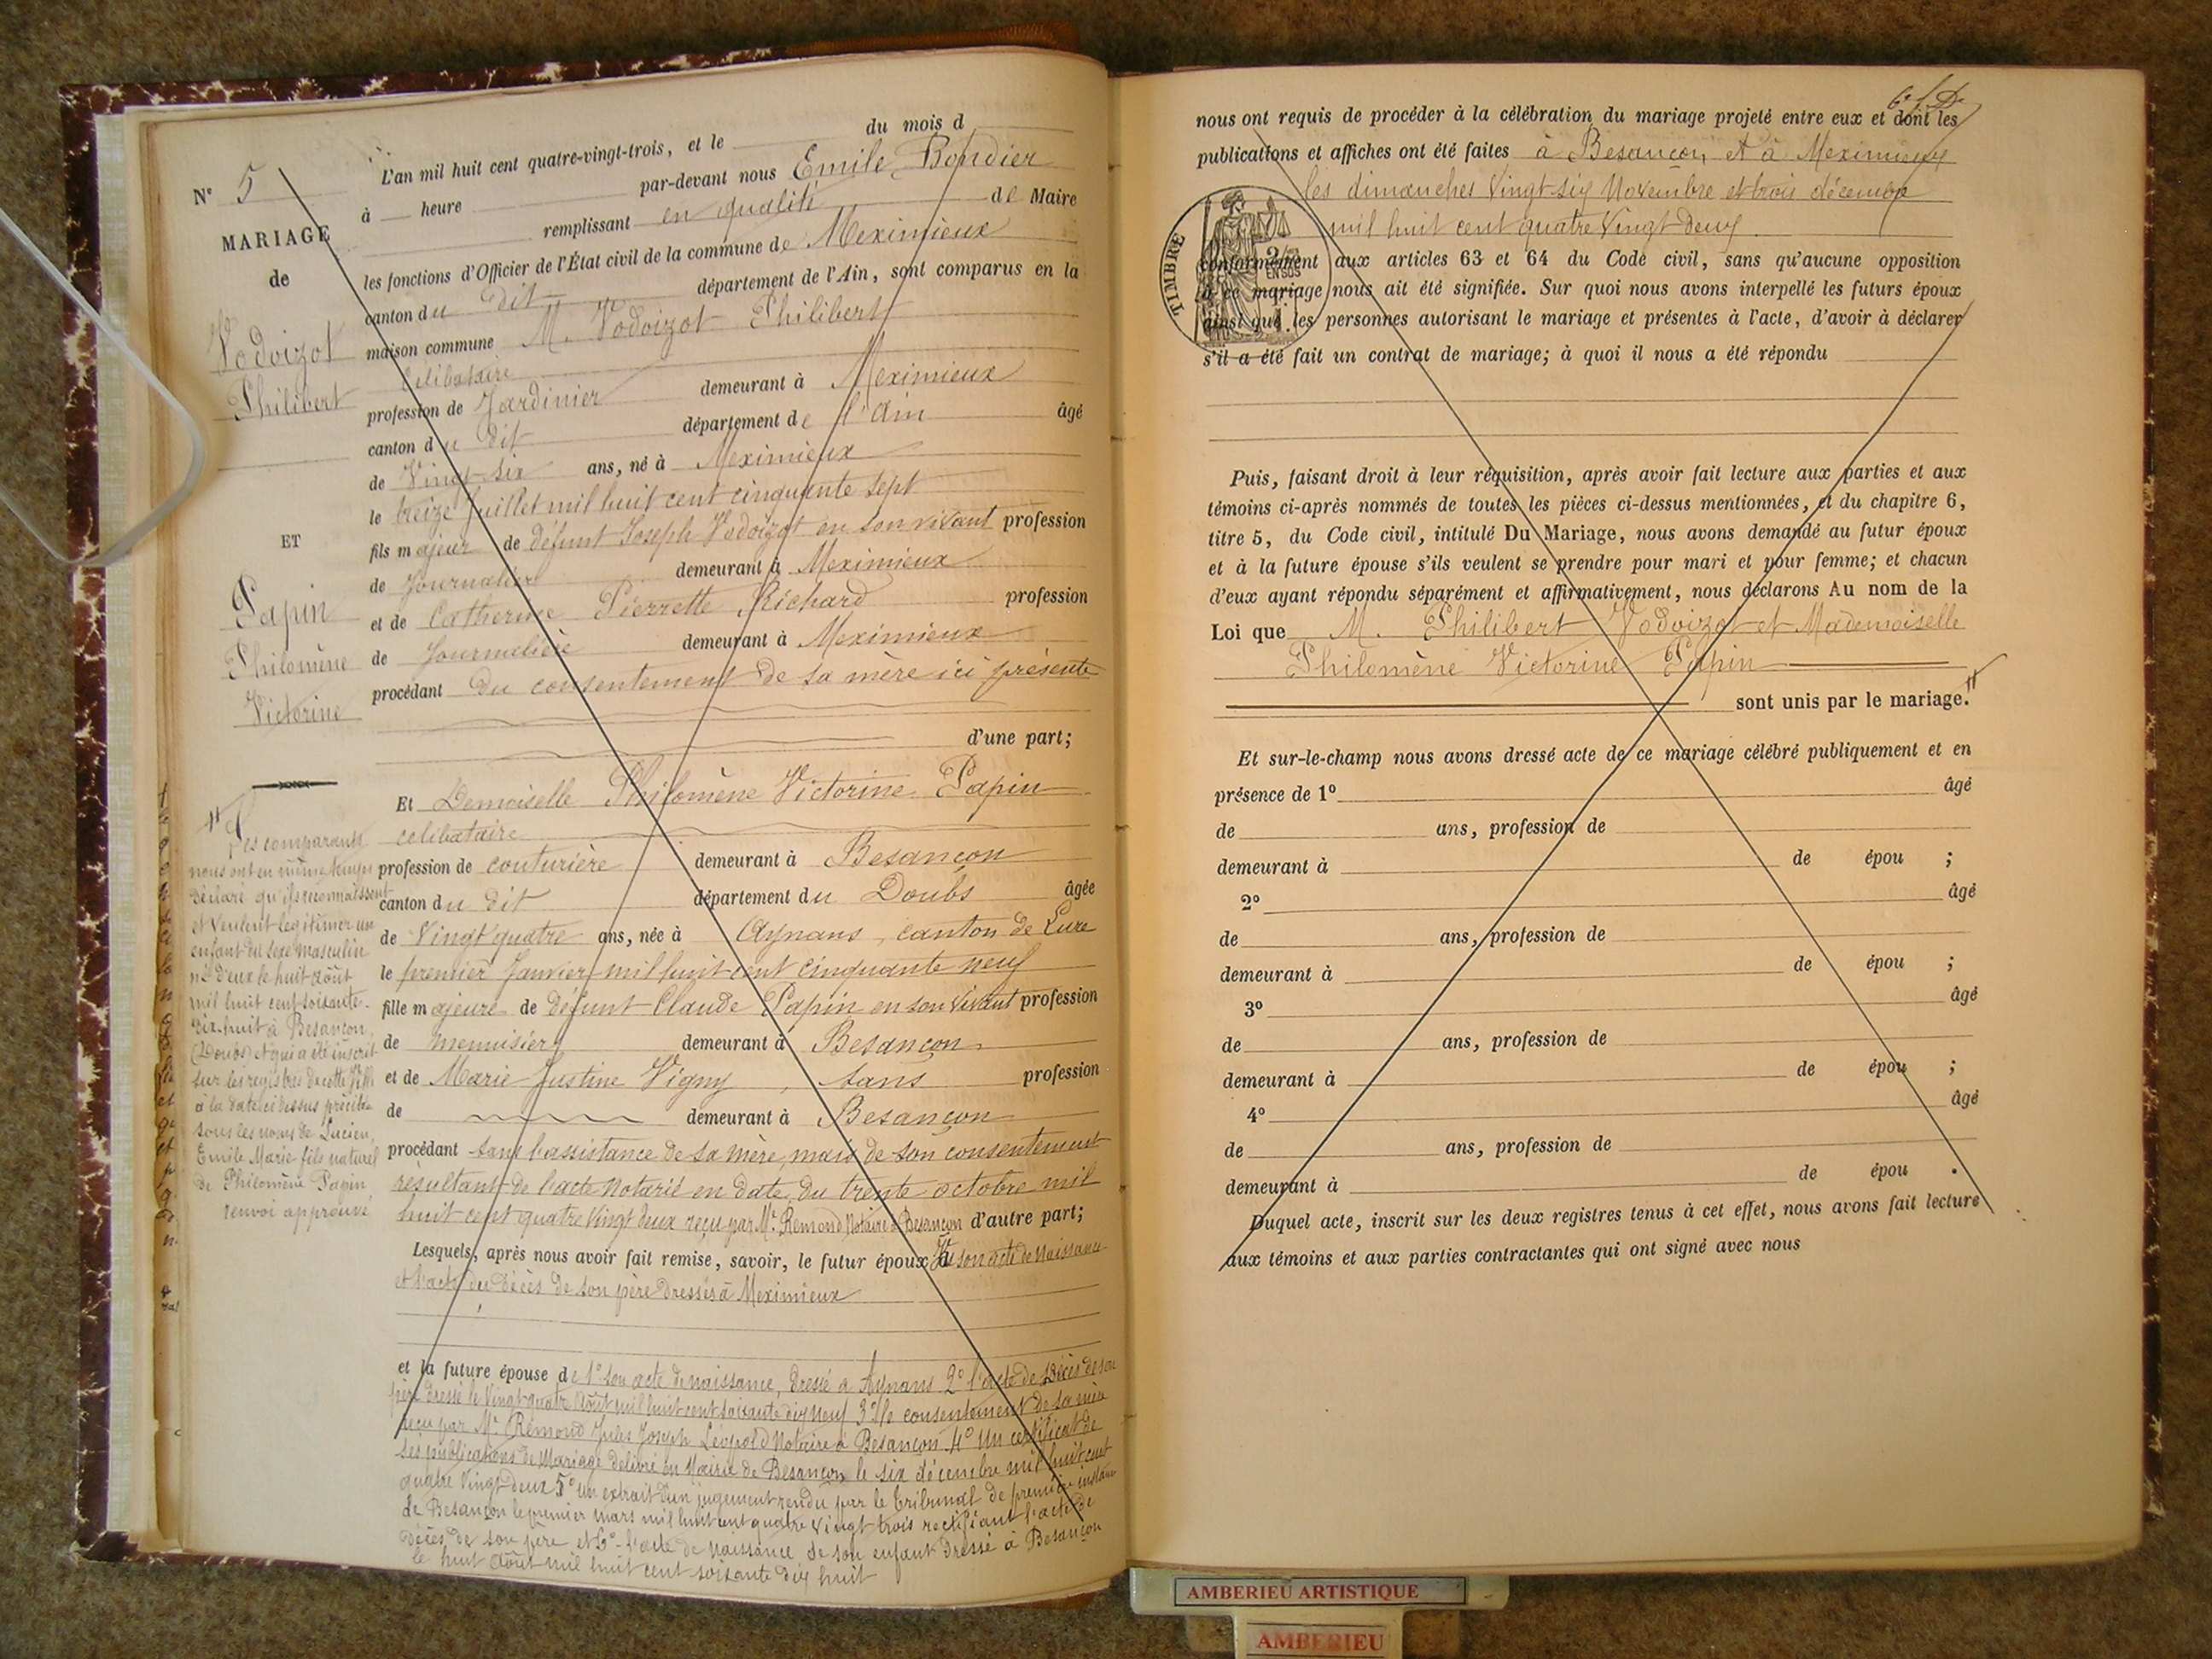 N° 5
MARIAGE
de
Vodoizot
Philibert
ET
Papin
Philomène
Victorine
Les comparants
nous ont en même temps
déclaré qu'ils reconnaissent
et veulent légitimer un
enfant du sexe masculin
né d'eux le huit août
mil huit cent soixante-
dix-huit à Besançon
(Doubs) et qui a été inscrit
sur les registres de cette Ville
à la date ci dessus précitée
sous les noms de Lucien,
Emile Marie fils naturel
de Philomène Papin
renvoi approuvé
L'an mil huit cent quatre-vingt-trois, et le du mois d
à heure par-devant nous Emile Bondier
remplissant en qualité de Maire
les fonctions d'Officier de l'État civil de la commune de Meximieux
canton du dit département de l'Ain, sont comparus en la
maison commune M. Vodoizot Philibert
célibataire
profession de Jardinier demeurant à Meximieux
canton du dit département de l'Ain âgé
de Vingt-six ans, né à Meximieux
le treize Juillet mil huit cent cinquante sept
fils majeur de défunt Joseph Vodoizot en son vivant profession
de Journalier demeurant à Meximieux
et de Catherine Pierrette Richard profession
de Journalière demeurant à Meximieux
procédant du consentement de sa mère ici présente
d'une part;
Et Demoiselle Philomène Victorine Papin
célibataire
profession de couturière demeurant à Besançon
canton du dit département du Doubs âgée
de Vingt quatre ans, née à Aynans, canton de Lure
le premier Janvier mil huit cent cinquante neuf
fille majeure de défunt Claude Papin en son vivant profession
de menuisier demeurant à Besançon
et de Marie Justine Vigny, sans profession
de demeurant à Besançon
procédant sans l'assistance de sa mère, mais de son consentement
résultant de l'acte notarié en date du trente octobre mil
huit cent quatre vingt deux reçu par Me Rémond Notaire à Besançon d'autre part;
Lesquels, après nous avoir fait remise, savoir, le futur époux de son acte de Naissance
et l'acte du décès de son père dressés à Meximieux
et la future épouse de 1° son acte de naissance, dressé à Aynans 2° l'acte de Décès de son
père dressé le Vingt quatre Août mil huit cent soixante dix neuf 3° le consentement de sa mère
reçu par Me Rémond Jules Joseph Léopold Notaire à Besançon 4° Un certificat de
ses publications de Mariage délivré en Mairie de Besançon le six décembre mil huit cent
quatre Vingt deux 5° un extrait d'un jugement rendu par le tribunal de première instance
de Besançon le premier mars mil huit cent quatre vingt trois rectifiant l'acte de
décès de son père et 6° l'acte de naissance de son enfant dressé à Besançon
le huit Août mil huit cent soixante dix huit
nous ont requis de procéder à la célébration du mariage projeté entre eux et dont les
publications et affiches ont été faites à Besançon, et à Meximieux
les dimanches Vingt-six Novembre et trois décembre
mil huit cent quatre Vingt deux
TIMBRE
conformément aux articles 63 et 64 du Code civil, sans qu'aucune opposition
à ce mariage nous ait été signifiée. Sur quoi nous avons interpellé les futurs époux
ainsi que les personnes autorisant le mariage et présentes à l'acte, d'avoir à déclarer
s'il a été fait un contrat de mariage; à quoi il nous a été répondu
Puis, faisant droit à leur réquisition, après avoir fait lecture aux parties et aux
témoins ci-après nommés de toutes les pièces ci-dessus mentionnées, et du chapitre 6,
titre 5, du Code civil, intitulé Du Mariage, nous avons demandé au futur époux
et à la future épouse s'ils veulent se prendre pour mari et pour femme; et chacun
d'eux ayant répondu séparément et affirmativement, nous déclarons Au nom de la
Loi que M. Philibert Vodoizot et Mademoiselle
Philomène Victorine Papin
sont unis par le mariage.
Et sur-le-champ nous avons dressé acte de ce mariage célébré publiquement et en
présence de 1° âgé
de ans, profession de
demeurant à de épou ;
2° âgé
de ans, profession de
demeurant à de épou ;
3° âgé
de ans, profession de
demeurant à de épou ;
4° âgé
de ans, profession de
demeurant à de épou .
Duquel acte, inscrit sur les deux registres tenus à cet effet, nous avons fait lecture
aux témoins et aux parties contractantes qui ont signé avec nous
AMBERIEU ARTISTIQUE
AMBERIEU